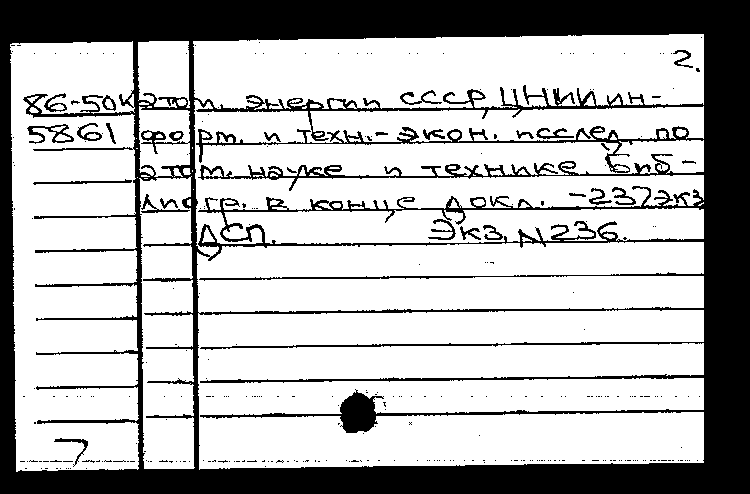 2.
86-50к атом. энергии СССР, ЦНИИ ин-
5861 форм. и техн.-экон. исслед. по
атом. науке и технике. Биб-
лиогр. в конце докл. -237экз
ДСП. Экз. N 236.